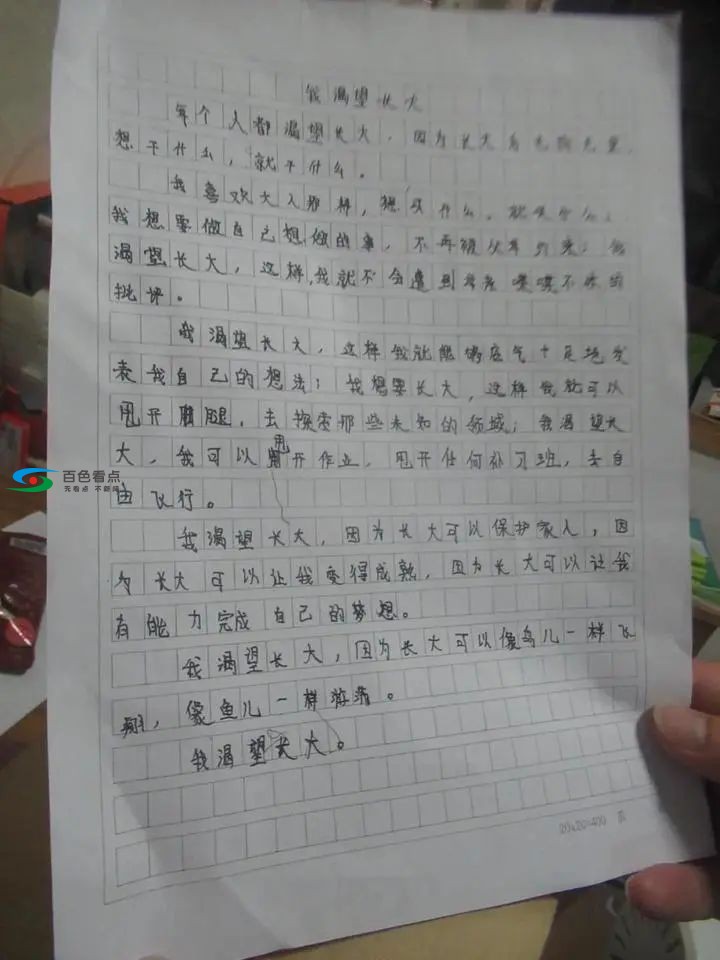 我渴望长大
每个人都渴望长大，因为长大后无拘无束，
想干什么，就干什么。
我喜欢大人那样，想买什么，就买什么；
我想要做自己想做的事，不再被父母约束；我
渴望长大，这样，我就不会遭到 喋喋不休的
批评。
我渴望长大，这样我就能够底气十足地发
表我自己的想法；我想要长大，这样我就可以
甩开 腿，去探索那些未知的领域；我渴望长
大，我可以甩开作业，甩开任何补习班，去自
由飞行。
我渴望长大，因为长大可以保护家人，因
为长大可以让我变得成熟，因为长大可以让我
有能力完成自己的梦想。
我渴望长大，因为长大可以像鸟儿一样飞
翔，像鱼儿一样游
我渴望长大。
20×20=400 页
百色看点
无看点 不新闻